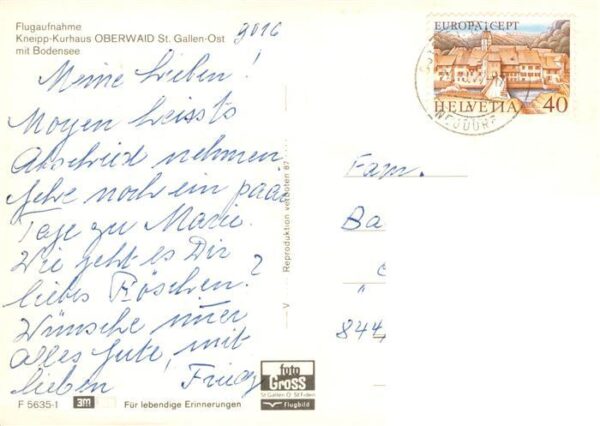 Flugaufnahme
Kneipp-Kurhaus OBERWAID St. Gallen-Ost
mit Bodensee
9016
Meine Lieben!
Morgen heissts
Abschied nehmen
Gehe noch ein paar
Tage zu Marie.
Wie geht es Dir
liebes Röschen?
Wünsche immer
alles Gute, mit
lieben
EUROPA CEPT
HELVETIA 40
NEUDORF
Fam.
Ba
844
V Reproduktion verboten 87
foto
GROSS
St. Gallen O. St. Fiden
Flugbild
F 5635-1 3m Für lebendige Erinnerungen